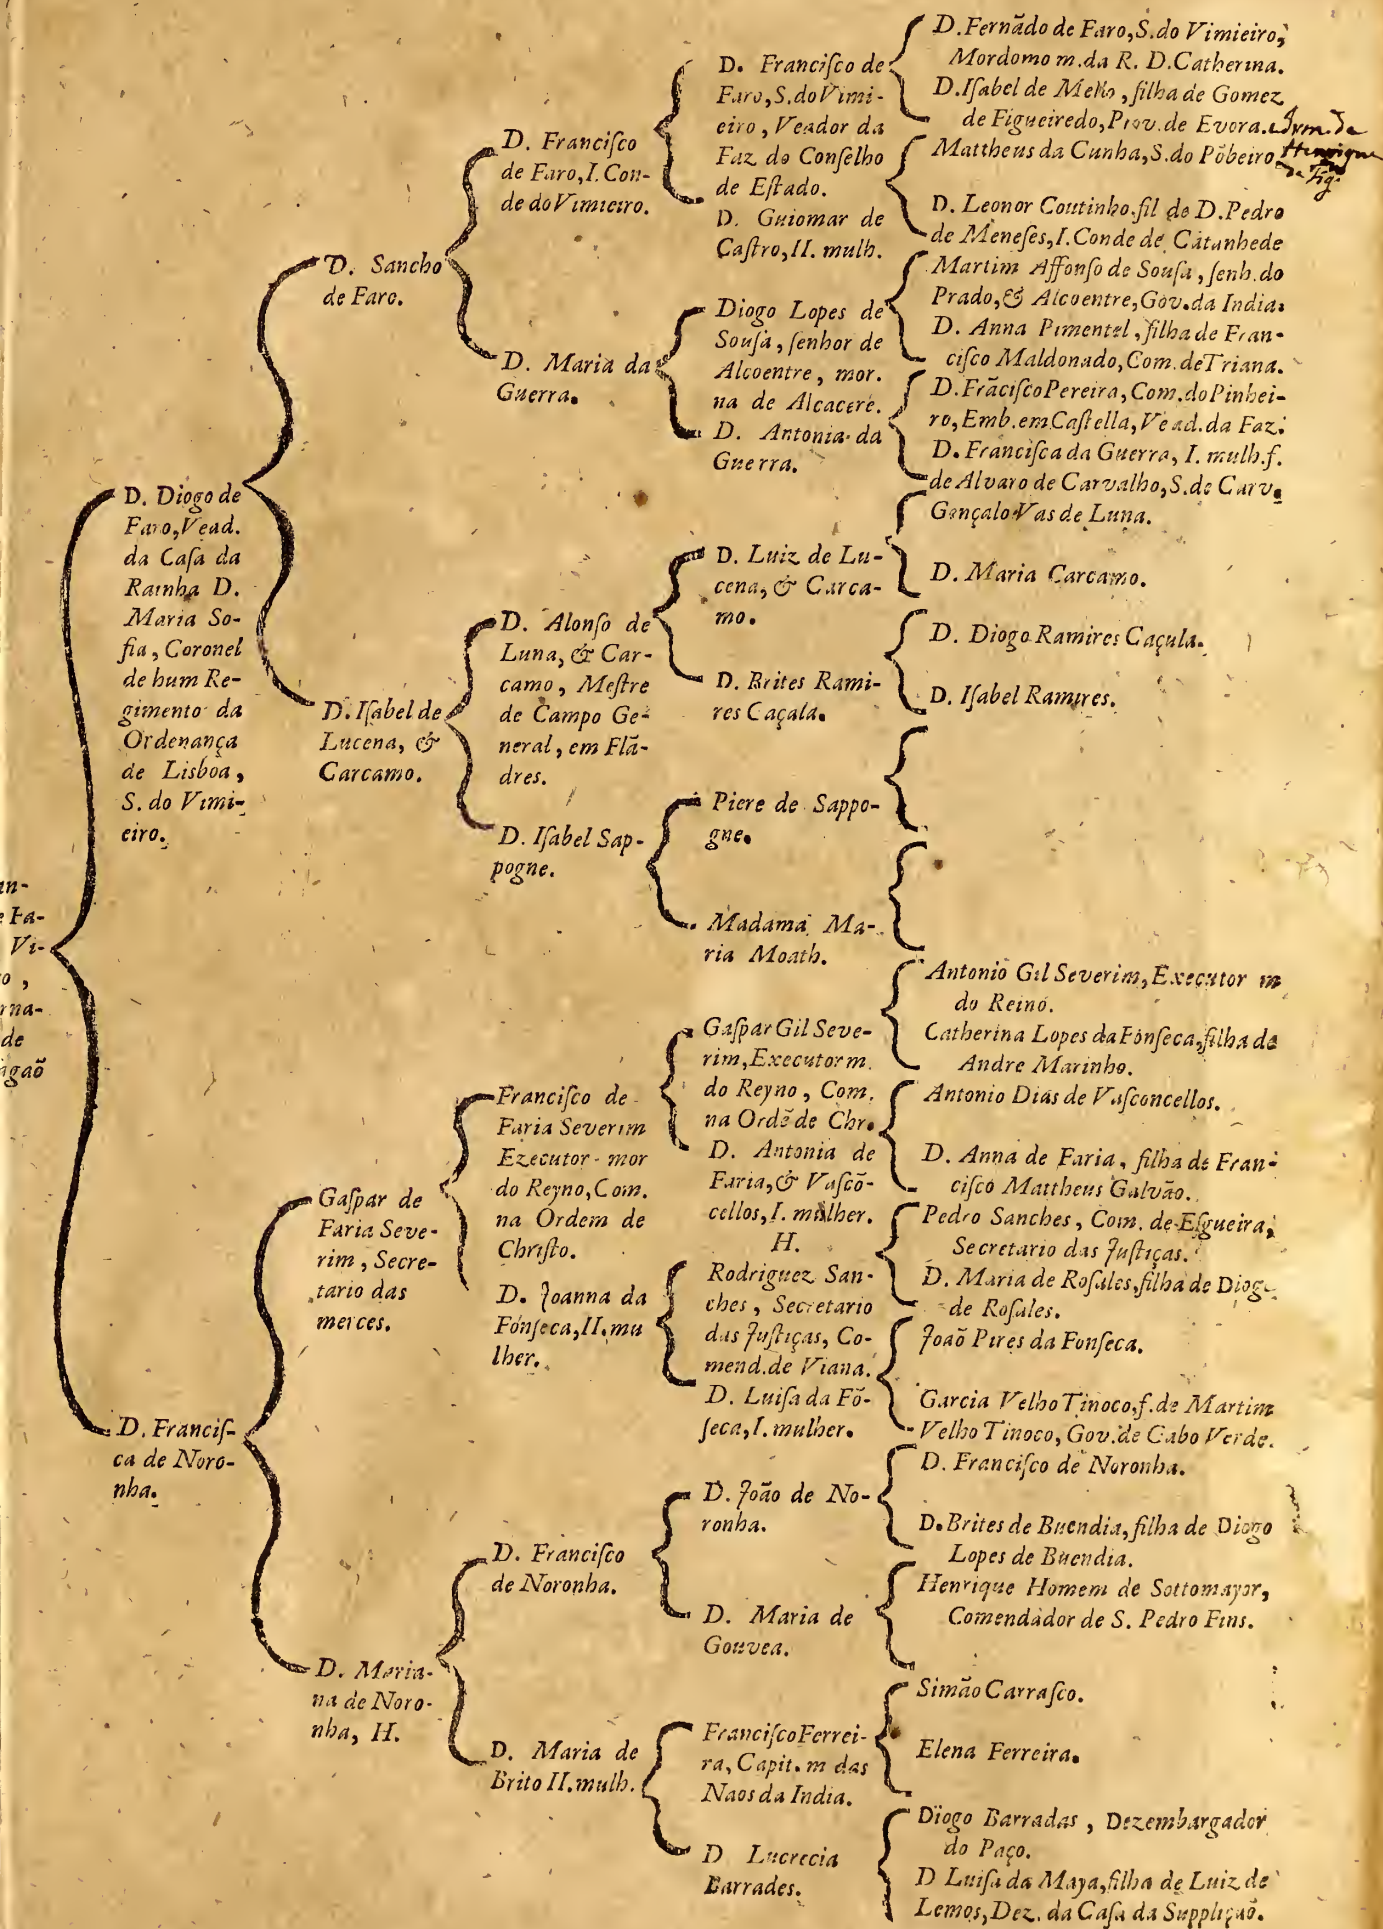 D. Diogo de
Faro, Vead.
da Caſa da
Rainha D.
Maria So-
fia, Coronel
de hum Re-
gimento da
Ordenança
de Lisboa,
S. do Vimi-
eiro.
D. Franciſ-
ca de Noro-
nha.
D. Sancho
de Faro.
D. Iſabel de
Lucena, &
Carcamo.
Gaſpar de
Faria Seve-
rim, Secre-
tario das
merces.
D. Maria-
na de Noro-
nha, H.
D. Franciſco
de Faro, I. Con-
de do Vimieiro.
D. Maria da
Guerra.
D. Alonſo de
Luna, & Car-
camo, Meſtre
de Campo Ge-
neral, em Flã-
dres.
D. Iſabel Sap-
pogne.
Franciſco de
Faria Severim
Ezecutor-mor
do Reyno, Com.
na Ordem de
Chriſto.
D. Joanna da
Fonſeca, II. mu
lher.
D. Franciſco
de Noronha.
D. Maria de
Brito II. mulh.
D. Franciſco de
Faro, S. do Vimi-
eiro, Veador da
Faz do Conſelho
de Eſtado.
D. Guiomar de
Caſtro, II. mulh.
Diogo Lopes de
Souſa, ſenhor de
Alcoentre, mor.
na de Alcacere.
D. Antonia da
Guerra.
D. Luiz de Lu-
cena, & Carca-
mo.
D. Brites Rami-
res Caçala.
Piere de Sappo-
gne.
Madama Ma-
ria Moath.
Gaſpar Gil Seve-
rim, Executor m.
do Reyno, Com.
na Ordẽ de Chr.
D. Antonia de
Faria, & Vaſcõ-
cellos, I. mulher.
H.
Rodriguez San-
ches, Secretario
das Juſtiças, Co-
mend. de Viana.
D. Luiſa da Fõ-
ſeca, I. mulher.
D. João de No-
ronha.
D. Maria de
Gouvea.
Franciſco Ferrei-
ra, Capit. m das
Naos da India.
D Lucrecia
Barrades.
D. Fernãdo de Faro, S. do Vimieiro,
Mordomo m. da R. D. Catherina.
D. Iſabel de Mello, filha de Gomez
de Figueiredo, Prov. de Evora.
Mattheus da Cunha, S. do Põbeiro
D. Leonor Coutinho. fil de D. Pedro
de Meneſes, I. Conde de Catanhede
Martim Affonſo de Souſa, ſenh. do
Prado, & Alcoentre, Gov. da India.
D. Anna Pimentel, filha de Fran-
ciſco Maldonado, Com. de Triana.
D. Frãciſco Pereira, Com. do Pinhei-
ro, Emb. em Caſtella, Vead. da Faz.
D. Franciſca da Guerra, I. mulh. f.
de Alvaro de Carvalho, S. de Carv.
Gonçalo Vas de Luna.
D. Maria Carcamo.
D. Diogo Ramires Caçula.
D. Iſabel Ramires.
Antonio Gil Severim, Executor m
do Reino.
Catherina Lopes da Fonſeca, filha de
Andre Marinho.
Antonio Dias de Vaſconcellos.
D. Anna de Faria, filha de Fran-
ciſco Mattheus Galvão.
Pedro Sanches, Com. de Eſgueira,
Secretario das Juſtiças.
D. Maria de Roſales, filha de Diog
de Roſales.
João Pires da Fonſeca.
Garcia Velho Tinoco, f. de Martim
Velho Tinoco, Gov. de Cabo Verde.
D. Franciſco de Noronha.
D. Brites de Buendia, filha de Diogo
Lopes de Buendia.
Henrique Homem de Sottomayor,
Comendador de S. Pedro Fins.
Simão Carraſco.
Elena Ferreira.
Diogo Barradas, Dezembargador
do Paço.
D Luiſa da Maya, filha de Luiz de
Lemos, Dez. da Caſa da Suppliçaõ.